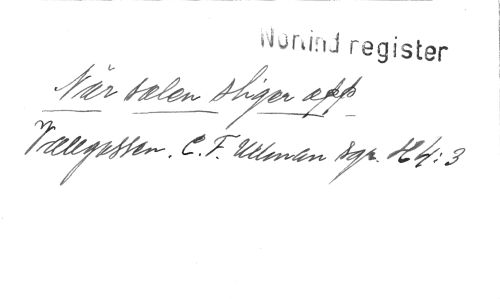 Norlind register
När solen stiger opp
Vallgossen. C. F. Ullman Sgr. H 4:3